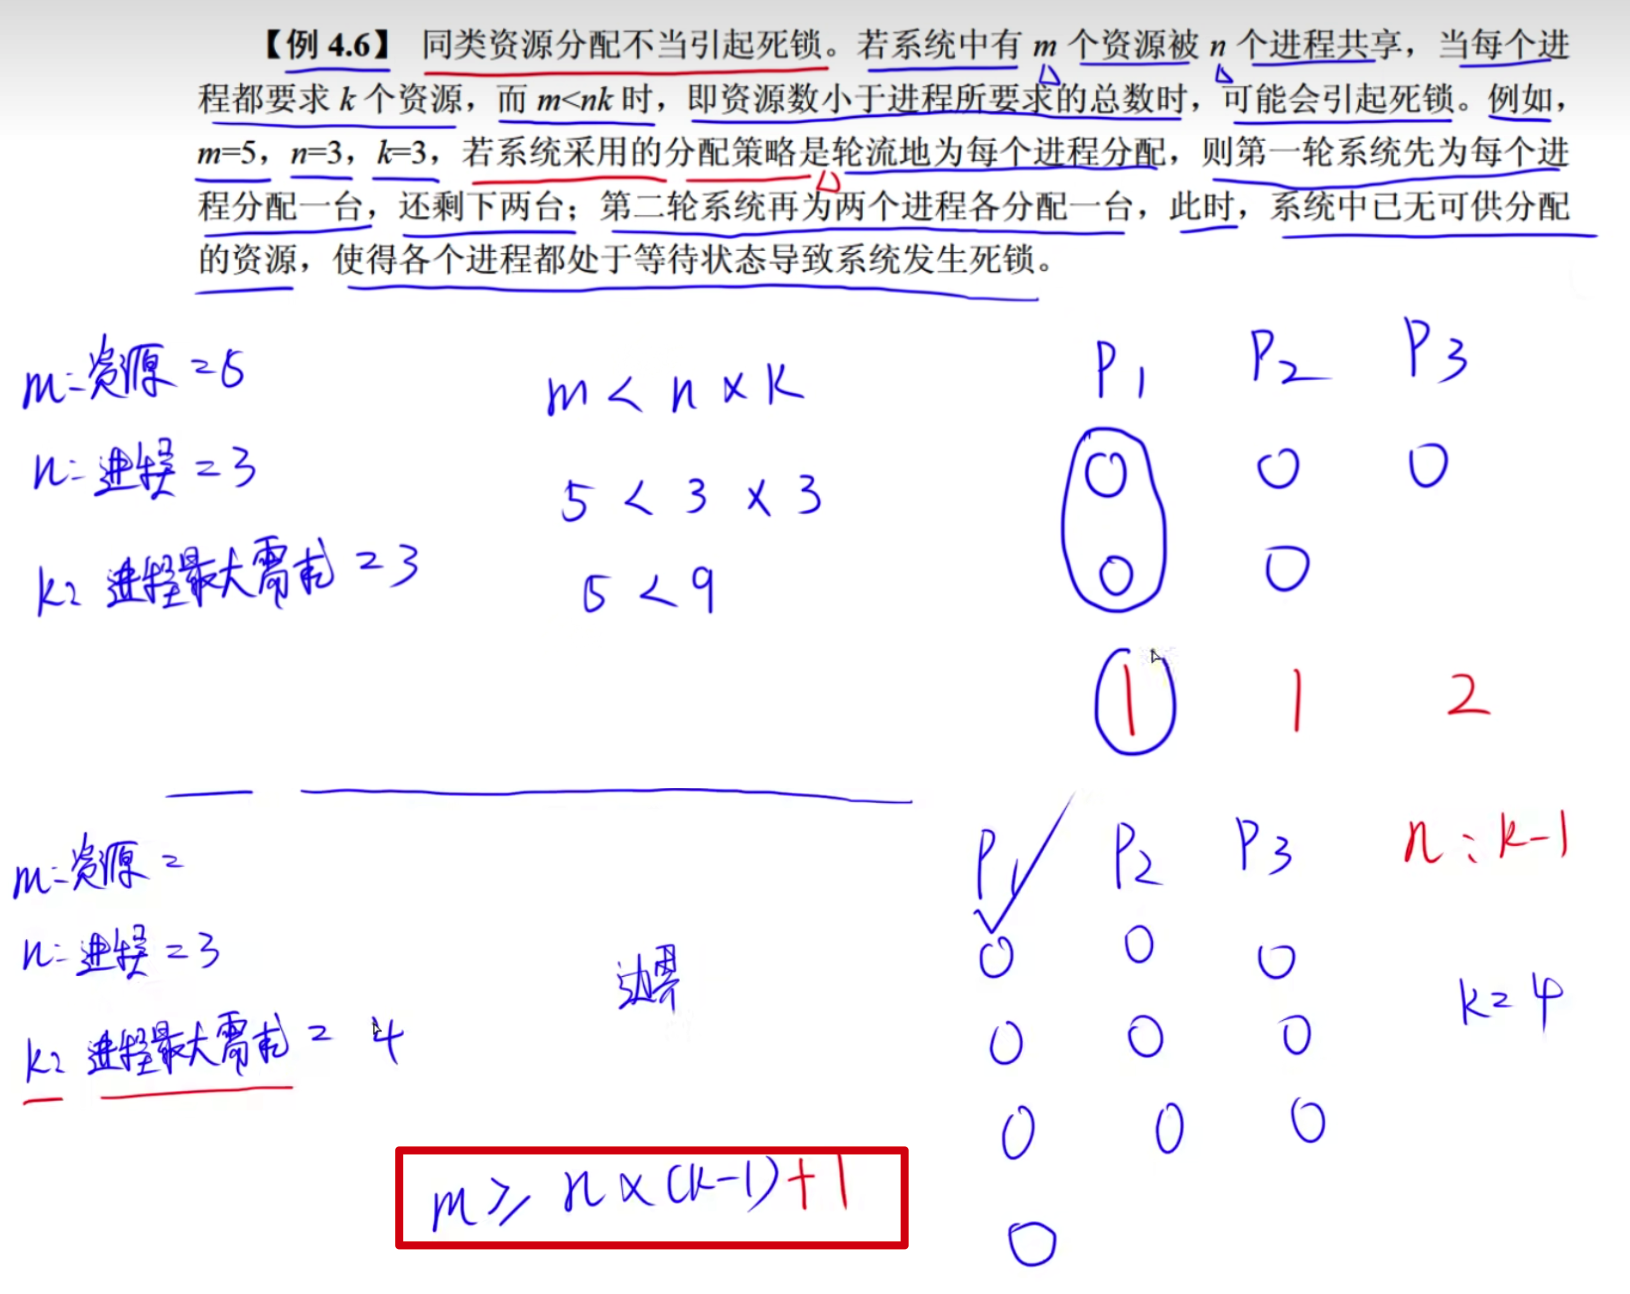 【例 4.6】 同类资源分配不当引起死锁。若系统中有 m 个资源被 n 个进程共享，当每个进
程都要求 k 个资源，而 m<nk 时，即资源数小于进程所要求的总数时，可能会引起死锁。例如，
m=5，n=3，k=3，若系统采用的分配策略是轮流地为每个进程分配，则第一轮系统先为每个进
程分配一台，还剩下两台；第二轮系统再为两个进程各分配一台，此时，系统中已无可供分配
的资源，使得各个进程都处于等待状态导致系统发生死锁。
m=资源=5
n=进程=3
k=进程最大需求=3
m < n × k
5 < 3 × 3
5 < 9
P1 P2 P3
O O O
O O
1 1 2
m=资源=
n=进程=3
k=进程最大需求= 4
边界
m ≥ n × (k-1)+1
P1 P2 P3 n:k-1
O O O
k=4
O O O
O O O
O